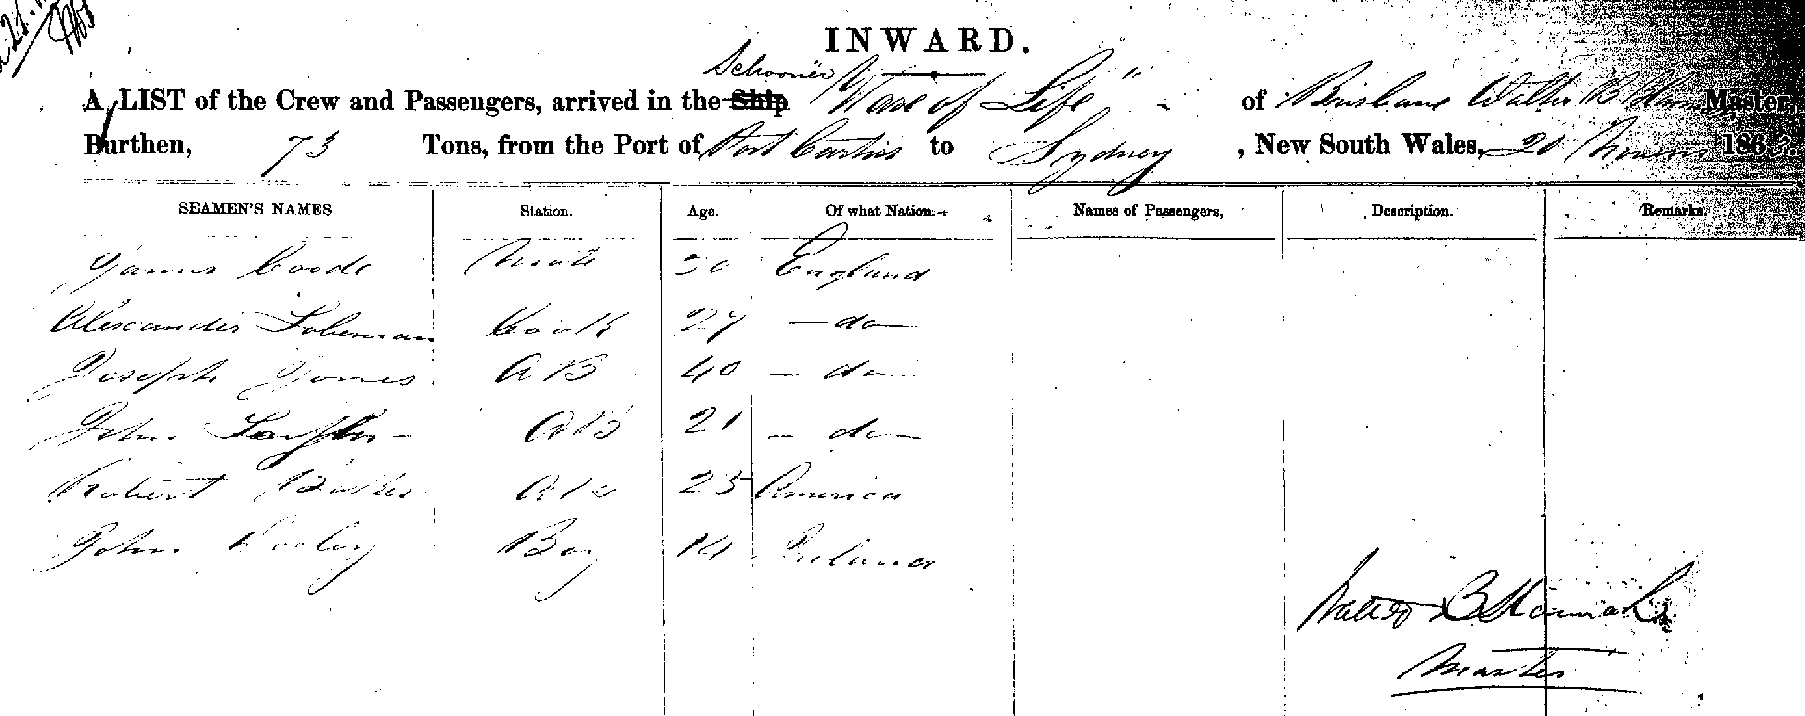 INWARD.
A LIST of the Crew and Passengers, arrived in the Ship Schooner "Wave of Life" of Brisbane Walter B Master,
Burthen, 73 Tons, from the Port of Port Curtis to Sydney, New South Wales, 20 186
SEAMEN'S NAMES Station. Age. Of what Nation. Names of Passengers, Description. Remarks
James Coode Mate 30 England
Alexander Coleman Cook 27 - do -
Joseph Jones AB 40 - do -
John AB 21 - do -
Robert AB 25 America
John Dooley Boy 14 Ireland
Walter B
Master